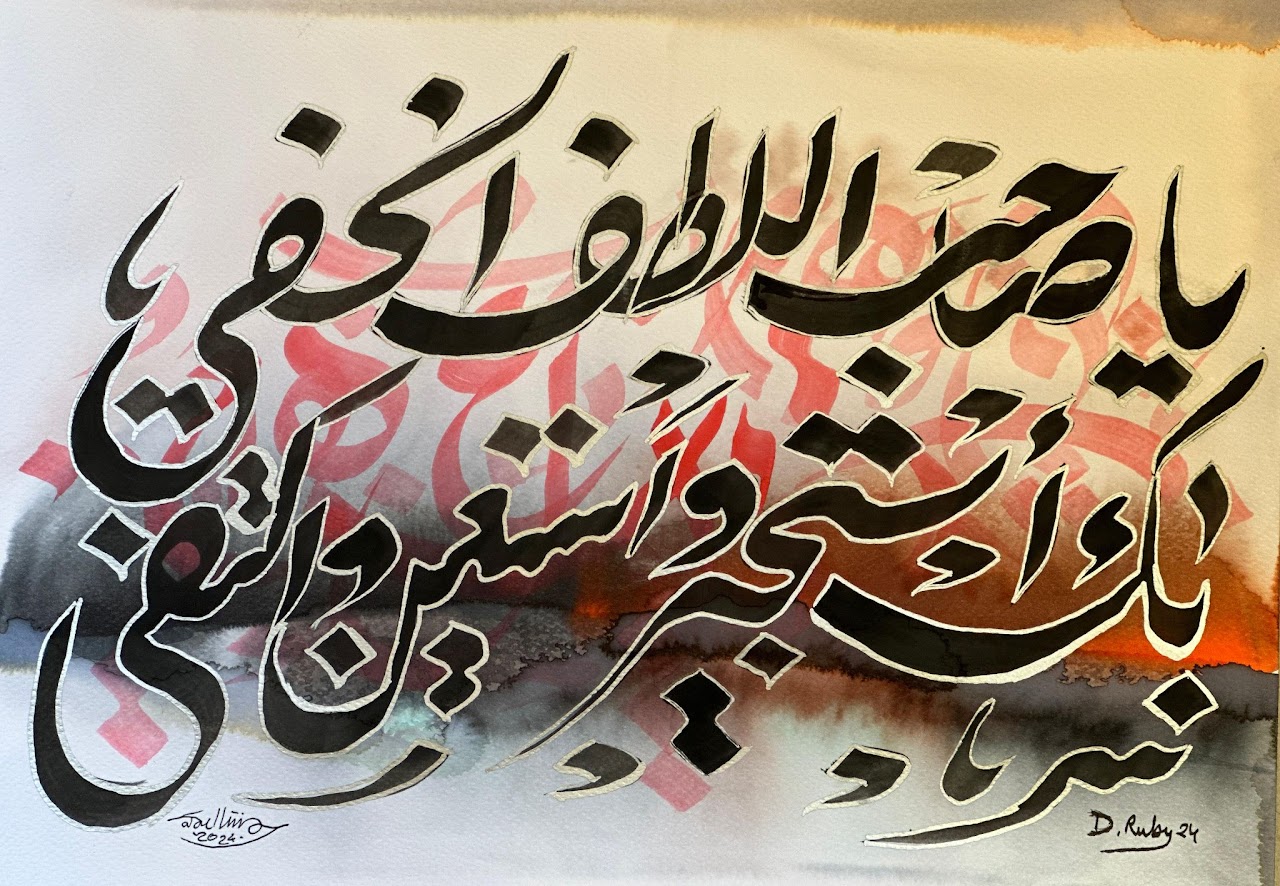 يا صاحب اللطف الخفي
بك أستجير وأستعين واكتفي
2024
D. Ruby 24